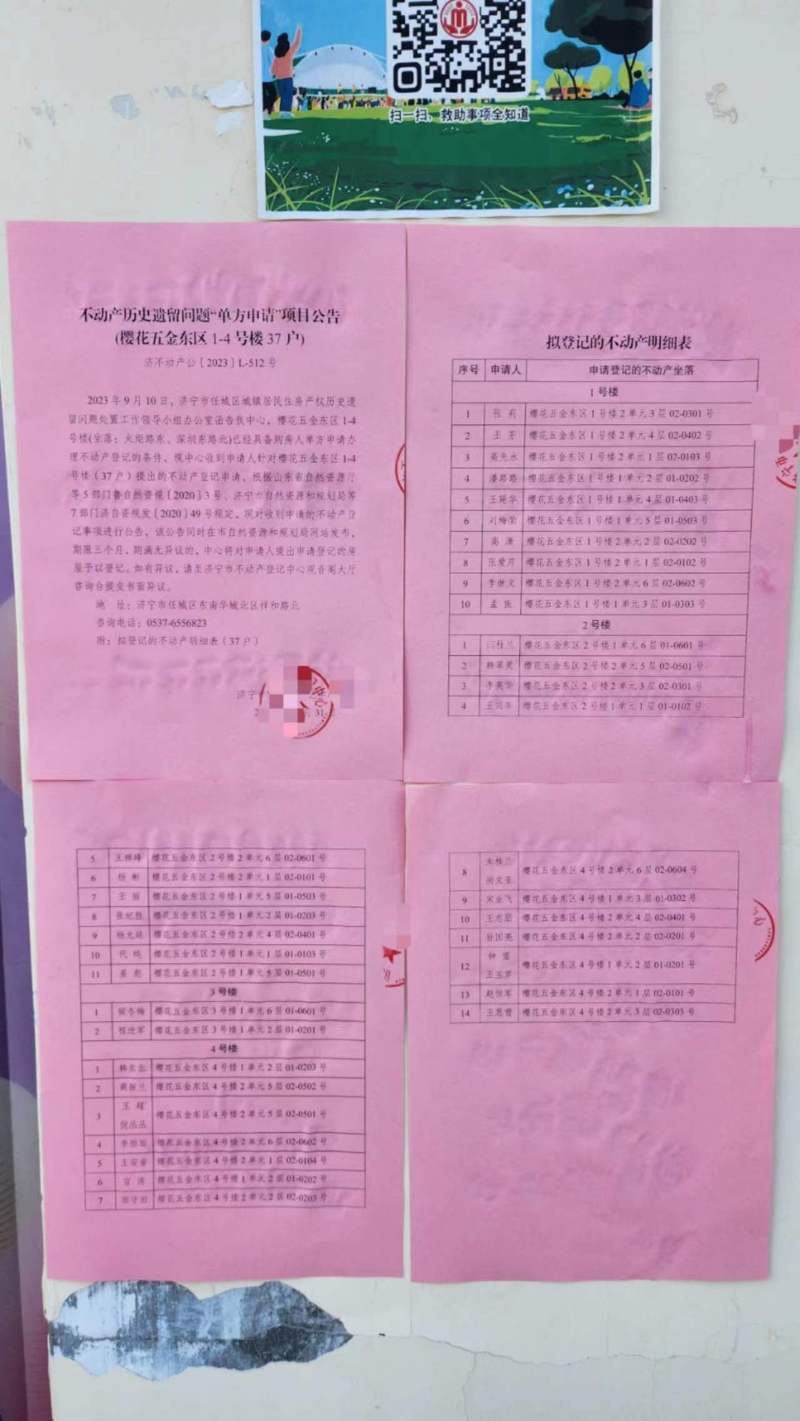 扫一扫，救助事项全知道
不动产历史遗留问题“单方申请”项目公告
(樱花五金东区 1-4 号楼 37 户)
济不动产公［2023］L-512 号
2023 年 9 月 10 日，济宁市任城区城镇居民住房产权历史遗
留问题处置工作领导小组办公室函告我中心，樱花五金东区 1-4
号楼(坐落：火炬路东、深圳东路北)已经具备购房人单方申请办
理不动产登记的条件，现中心收到申请人针对樱花五金东区 1-4
号楼（37 户）提出的不动产登记申请，根据山东省自然资源厅
等 5 部门鲁自然资规［2020］3 号、济宁市自然资源和规划局等
7 部门济自资规发［2020］49 号规定，现对收到申请的不动产登
记事项进行公告，该公告同时在市自然资源和规划局网站发布，
期限三个月，期满无异议的，中心将对申请人提出申请登记的房
屋予以登记。如有异议，请至济宁市不动产登记中心观音阁大厅
咨询台提交书面异议。
地 址：济宁市任城区东南华城北区祥和路北
咨询电话：0537-6556823
附：拟登记的不动产明细表（37 户）
济宁
拟登记的不动产明细表
序号 申请人 申请登记的不动产坐落
1 号楼
1 张莉 樱花五金东区 1 号楼 2 单元 3 层 02-0301 号
2 王芳 樱花五金东区 1 号楼 2 单元 4 层 02-0402 号
3 高先水 樱花五金东区 1 号楼 2 单元 1 层 02-0103 号
4 潘路路 樱花五金东区 1 号楼 1 单元 2 层 01-0202 号
5 王延华 樱花五金东区 1 号楼 1 单元 4 层 01-0403 号
6 刘梅荣 樱花五金东区 1 号楼 1 单元 5 层 01-0503 号
7 高潇 樱花五金东区 1 号楼 2 单元 2 层 02-0202 号
8 张爱芹 樱花五金东区 1 号楼 2 单元 1 层 02-0102 号
9 李继文 樱花五金东区 1 号楼 2 单元 6 层 02-0602 号
10 孟振 樱花五金东区 1 号楼 1 单元 3 层 01-0303 号
2 号楼
1 闫桂兰 樱花五金东区 2 号楼 1 单元 6 层 01-0601 号
2 韩翠英 樱花五金东区 2 号楼 2 单元 5 层 02-0501 号
3 李英华 樱花五金东区 2 号楼 2 单元 3 层 02-0301 号
4 王兴年 樱花五金东区 2 号楼 1 单元 1 层 01-0102 号
5 樱花五金东区 2 号楼 2 单元 6 层 02-0601 号
6 杨彬 樱花五金东区 2 号楼 2 单元 1 层 02-0101 号
7 王丽 樱花五金东区 2 号楼 1 单元 5 层 01-0503 号
8 樱花五金东区 2 号楼 1 单元 2 层 01-0203 号
9 樱花五金东区 2 号楼 2 单元 4 层 02-0401 号
10 代纯 樱花五金东区 2 号楼 1 单元 1 层 01-0103 号
11 姜彪 樱花五金东区 2 号楼 1 单元 5 层 01-0501 号
3 号楼
1 侯冬梅 樱花五金东区 3 号楼 1 单元 6 层 01-0601 号
2 程进军 樱花五金东区 3 号楼 1 单元 2 层 01-0201 号
4 号楼
1 樱花五金东区 4 号楼 1 单元 2 层 01-0203 号
2 樱花五金东区 4 号楼 2 单元 5 层 02-0502 号
3 王超 倪丛丛 樱花五金东区 4 号楼 2 单元 5 层 02-0501 号
4 樱花五金东区 4 号楼 2 单元 6 层 02-0602 号
5 樱花五金东区 4 号楼 2 单元 1 层 02-0104 号
6 樱花五金东区 4 号楼 1 单元 2 层 01-0202 号
7 樱花五金东区 4 号楼 2 单元 2 层 02-0203 号
8 朱桂兰 樱花五金东区 4 号楼 2 单元 6 层 02-0604 号
9 宋业飞 樱花五金东区 4 号楼 1 单元 3 层 01-0302 号
10 樱花五金东区 4 号楼 2 单元 4 层 02-0401 号
11 杜国英 樱花五金东区 4 号楼 2 单元 2 层 02-0201 号
12 钟雷 王玉萍 樱花五金东区 4 号楼 1 单元 2 层 01-0201 号
13 赵恒军 樱花五金东区 4 号楼 2 单元 1 层 02-0101 号
14 王思雷 樱花五金东区 4 号楼 2 单元 3 层 02-0303 号